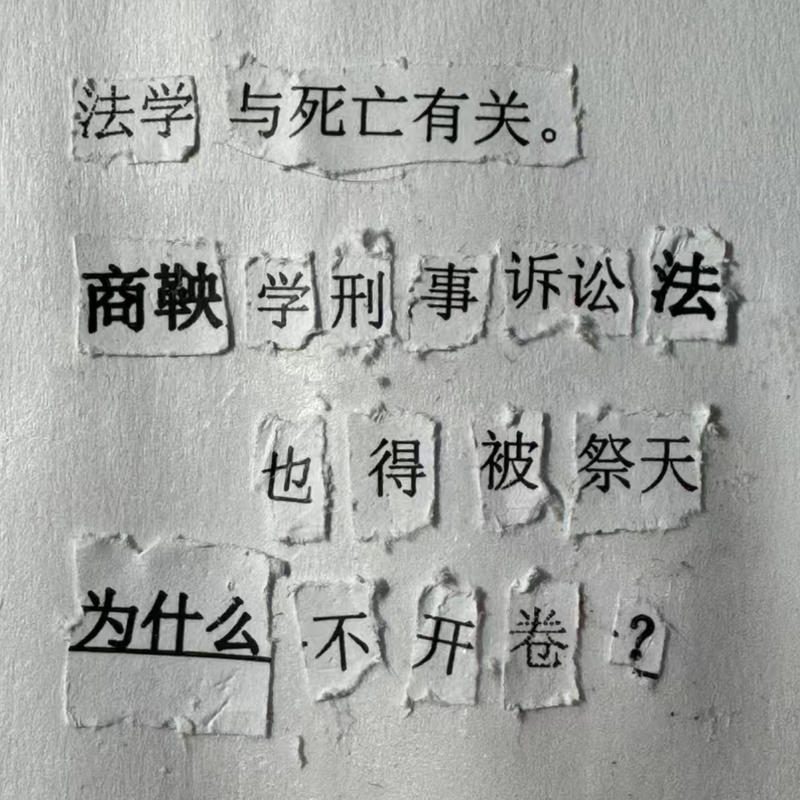 法学 与死亡有关。
商鞅 学 刑 事 诉讼 法
也 得 被 祭天
为什么 不 开 卷 ?